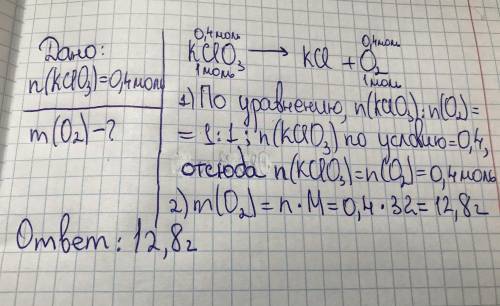 Дано:
n(KClO₃)=0,4моль
m(O₂)-?
0,4моль 0,4моль
KClO₃ → KCl + O₂
1моль 1моль
1) По уравнению, n(KClO₃):n(O₂)=
=1:1; n(KClO₃) по условию=0,4,
отсюда n(KClO₃)=n(O₂)=0,4моль
2) m(O₂)=n·M=0,4·32=12,8г
Ответ: 12,8г